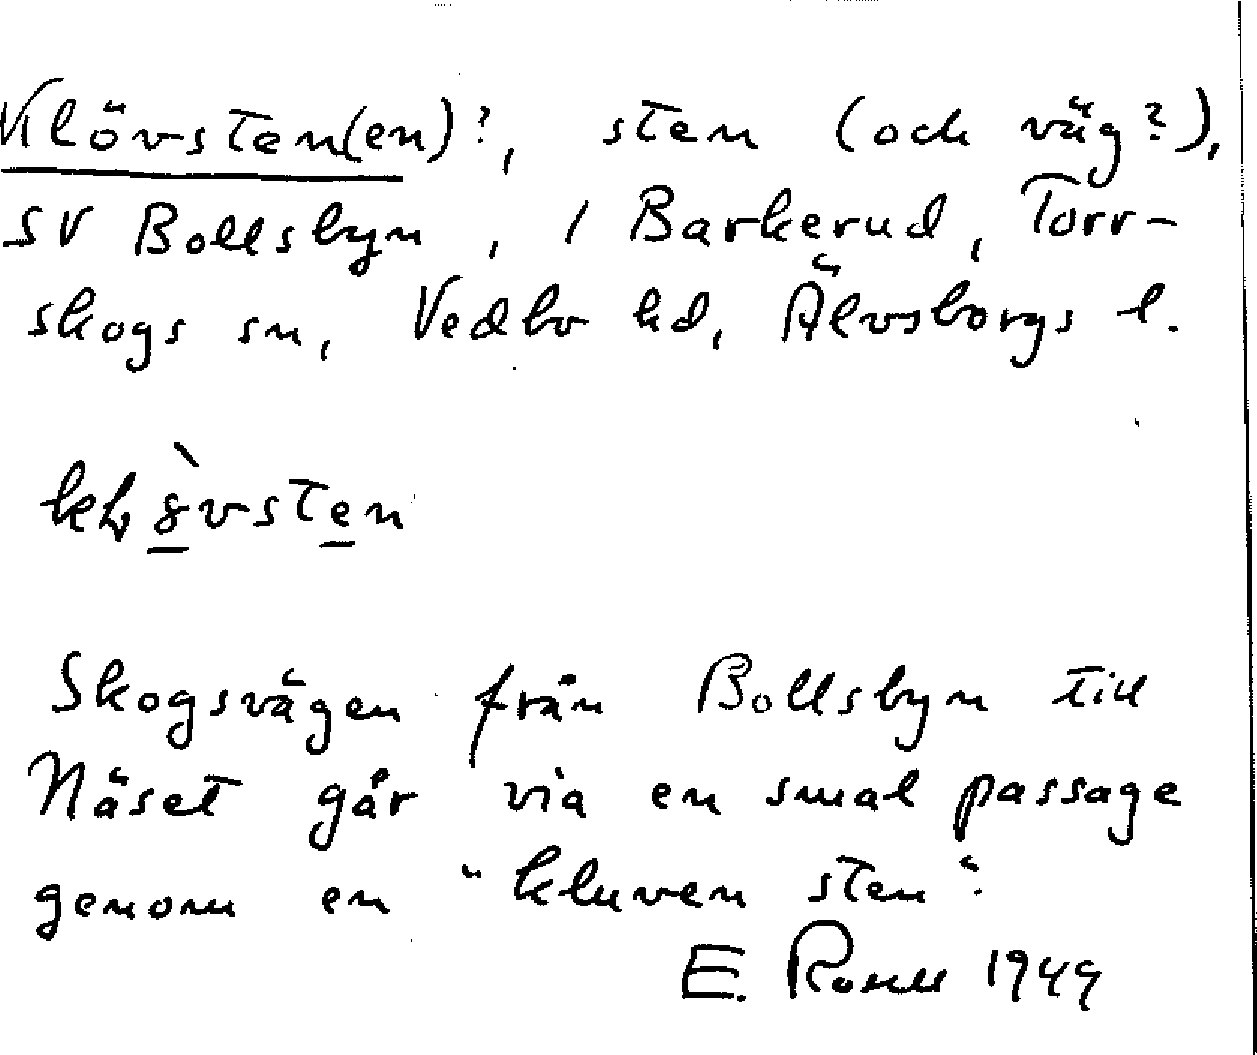 Klövsten(en)?, sten (och väg?),
SV Bollsbyn, i Barkerud, Torr-
skogs sn, Vedbo hd, Älvsborgs l.
Skogsvägen från Bollsbyn till
Näset går via en smal passage
genom en "kluven sten".
E. 1949